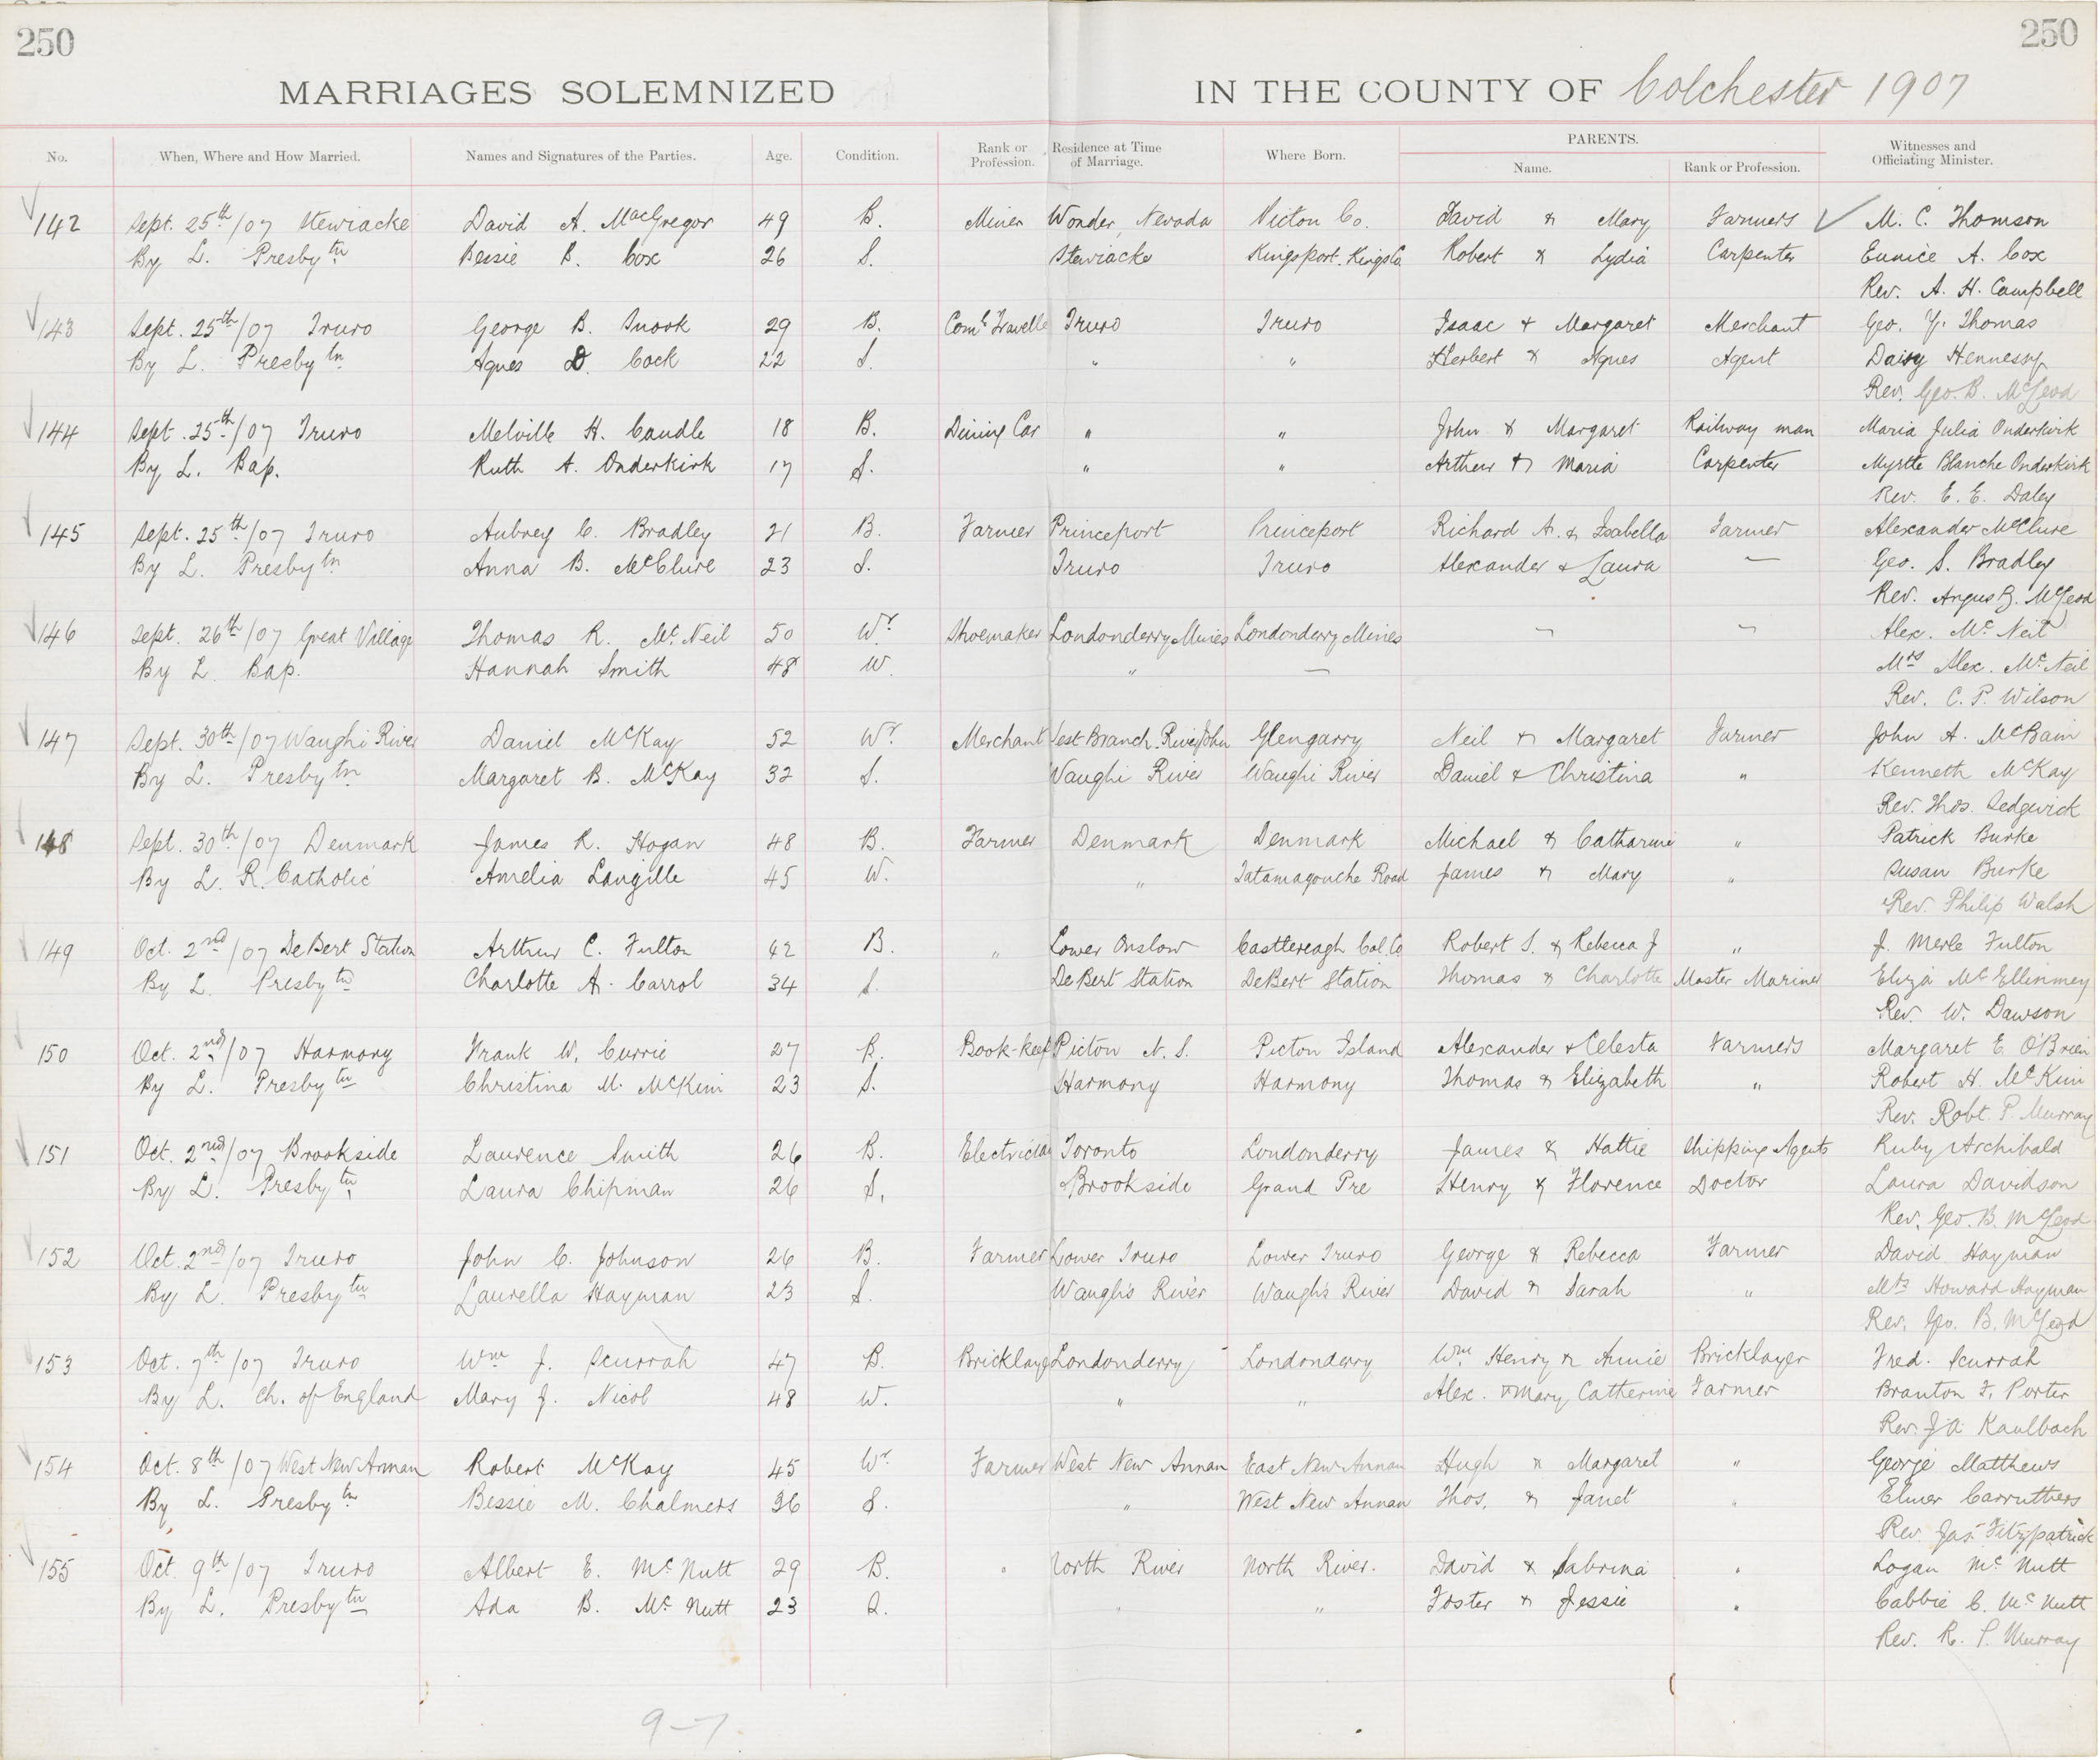 250 250
MARRIAGES SOLEMNIZED IN THE COUNTY OF Colchester 1907
No. When, Where and How Married. Names and Signatures of the Parties. Age. Condition. Rank or Profession. Residence at Time of Marriage. Where Born. PARENTS. Name. Rank or Profession. Witnesses and Officiating Minister.
142 Sept. 25th/07 Stewiacke David A. MacGregor 49 B. Miner Wonder, Nevada Pictou Co. David & Mary Farmers M. C. Thomson
By L. Presbytn Bessie B. Cox 26 S. Stewiacke Kingsport. Kings Co Robert & Lydia Carpenter Eunice A. Cox
Rev. A. H. Campbell
143 Sept. 25th/07 Truro George B. Snook 29 B. Coml Travelle Truro Truro Isaac & Margaret Merchant Geo. Y. Thomas
By L. Presbytn Agnes D. Cock 22 S. " " Herbert & Agnes Agent Daisy Hennessy
Rev. Geo. B. McLeod
144 Sept. 25th/07 Truro Melville H. Caudle 18 B. Dining Car " " John & Margaret Railway man Maria Julia Onderkirk
By L. Bap. Ruth A. Onderkirk 17 S. " " Arthur & Maria Carpenter Myrtle Blanche Onderkirk
Rev. E. E. Daley
145 Sept. 25th/07 Truro Aubrey C. Bradley 21 B. Farmer Princeport Princeport Richard A. & Isabella Farmer Alexander McClure
By L. Presbytn Anna B. McClure 23 S. Truro Truro Alexander & Laura — Geo. S. Bradley
Rev. Angus B. McLeod
146 Sept. 26th/07 Great Village Thomas R. McNeil 50 Wr Shoemaker Londonderry Mines Londonderry Mines — — Alex. McNeil
By L. Bap. Hannah Smith 48 W. " — Mrs Alex. McNeil
Rev. C. P. Wilson
147 Sept. 30th/07 Waughi River Daniel McKay 52 Wr. Merchant West Branch River John Glengarry Neil & Margaret Farmer John A. McBain
By L. Presbytn Margaret B. McKay 32 S. Waughi River Waughi River Daniel & Christina " Kenneth McKay
Rev. Thos. Sedgwick
148 Sept. 30th/07 Denmark James R. Hogan 48 B. Farmer Denmark Denmark Michael & Catharine " Patrick Burke
By L. R. Catholic Amelia Langille 45 W. " Tatamagouche Road James & Mary " Susan Burke
Rev. Philip Walsh
149 Oct. 2nd/07 DeBert Station Arthur C. Fulton 42 B. " Lower Onslow Castlereagh Col. Co Robert S. & Rebecca J " J. Merle Fulton
By L. Presbytn Charlotte A. Carrol 34 S. DeBert Station DeBert Station Thomas & Charlotte Master Mariner Eliza
Rev. W. Dawson
150 Oct. 2nd/07 Harmony Frank W. Currie 27 B. Book-keep Pictou N. S. Pictou Island Alexander & Celesta Farmers Margaret E. O'Brien
By L. Presbytn Christina M. McKim 23 S. Harmony Harmony Thomas & Elizabeth " Robert H. McKim
Rev. Robt. P Murray
151 Oct. 2nd/07 Brookside Laurence Smith 26 B. Electrician Toronto Londonderry James & Hattie Shipping Agents Ruby Archibald
By L. Presbytn Laura Chipman 26 S. Brookside Grand Pre Henry & Florence Doctor Laura Davidson
Rev. Geo. B. McLeod
152 Oct. 2nd/07 Truro John C. Johnson 26 B. Farmer Lower Truro Lower Truro George & Rebecca Farmer David Hayman
By L. Presbytn Laurella Hayman 23 S. Waugh's River Waugh's River David & Sarah " Mrs Howard Hayman
Rev. Geo. B. McLeod
153 Oct. 7th/07 Truro Wm J. Scurrah 47 B. Bricklayer Londonderry Londonderry Wm Henry & Annie Bricklayer Fred. Scurrah
By L. Ch. of England Mary J. Nicol 48 W. " " Alex. & Mary Catherine Farmer Branton F. Porter
Rev. J A Kaulbach
154 Oct. 8th/07 West New Annan Robert McKay 45 Wr Farmer West New Annan East New Annan Hugh & Margaret " George Matthews
By L. Presbytn Bessie M. Chalmers 36 S. " West New Annan Thos. & Janet " Elmer Carruthers
Rev Jas. Fitzpatrick
155 Oct. 9th/07 Truro Albert E. McNutt 29 B. " North River North River. David & Sabrina " Logan McNutt
By L. Presbytn Ada B. McNutt 23 S. " " Foster & Jessie " Cabbie C. McNutt
Rev. R. P. Murray
9-7